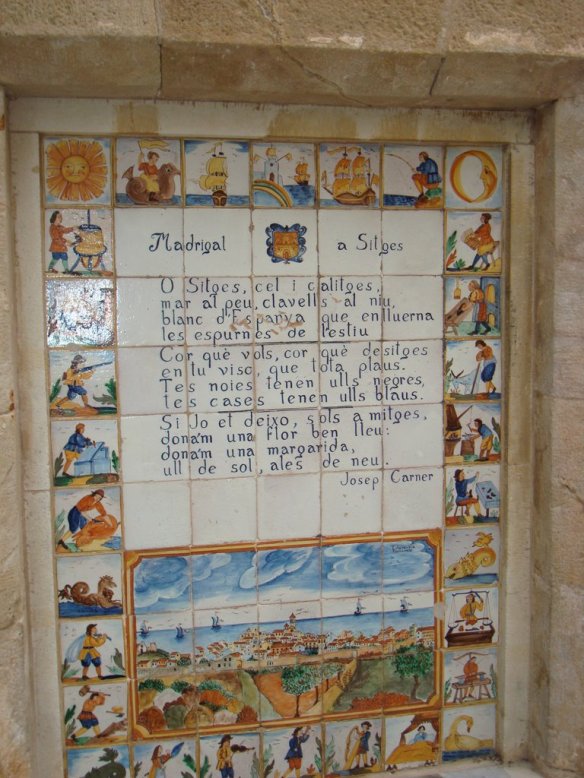 Madrigal a Sitges
O Sitges, cel i calitges,
mar al peu, clavells al niu,
blanc d'Espanya que enlluerna
les espurnes de l'estiu
Cor què vols, cor què desitges
en tu visc, que tota plaus.
Tes noies tenen ulls negres,
tes cases tenen ulls blaus.
Si Jo et deixo, sols a mitges,
dona'm una flor ben lleu:
dona'm una margarida,
ull de sol, ales de neu.
Josep Carner